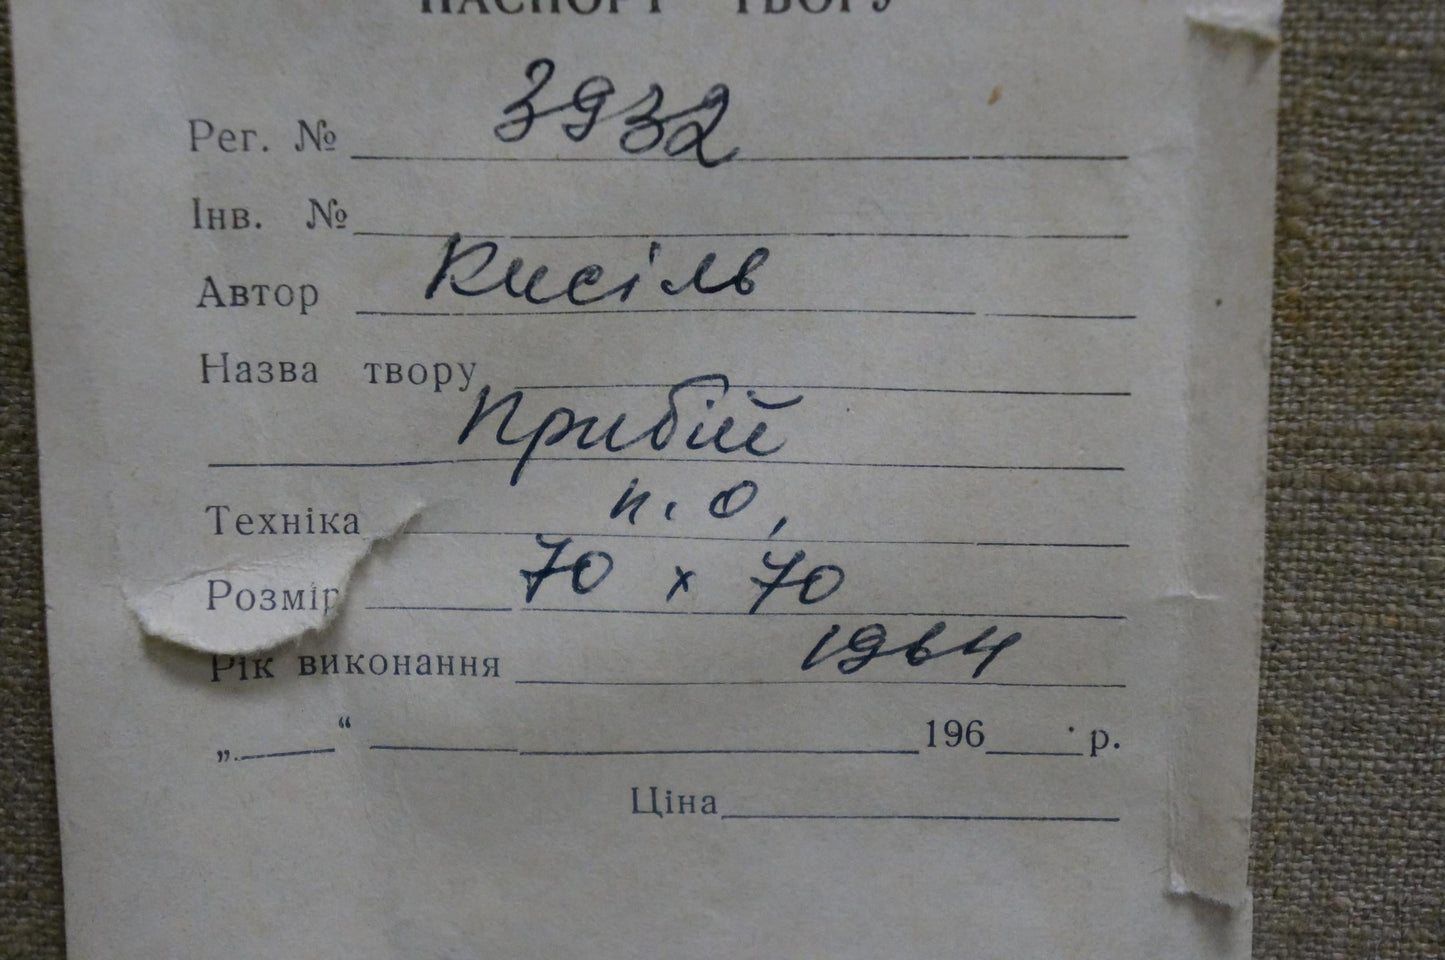 ПАСПОРТ ТВОРУ
Рег. № 3932
Інв. №
Автор Кисіль
Назва твору
Прибій
Техніка п. о,
Розмір 70 х 70
Рік виконання 1964
„ “ 196 р.
Ціна